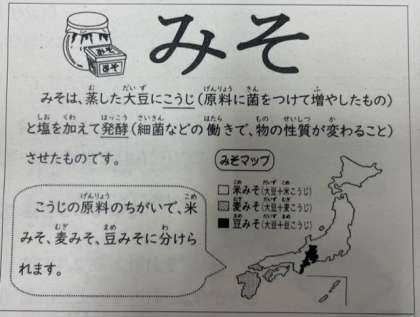 みそ
みそ
みそ
みそは、蒸した大豆にこうじ（原料に菌をつけて増やしたもの）
と塩を加えて発酵（細菌などの働きで、物の性質が変わること）
させたものです。
みそマップ
米みそ（大豆＋米こうじ）
麦みそ（大豆＋麦こうじ）
豆みそ（大豆＋豆こうじ）
こうじの原料のちがいで、米
みそ、麦みそ、豆みそに分けら
れます。